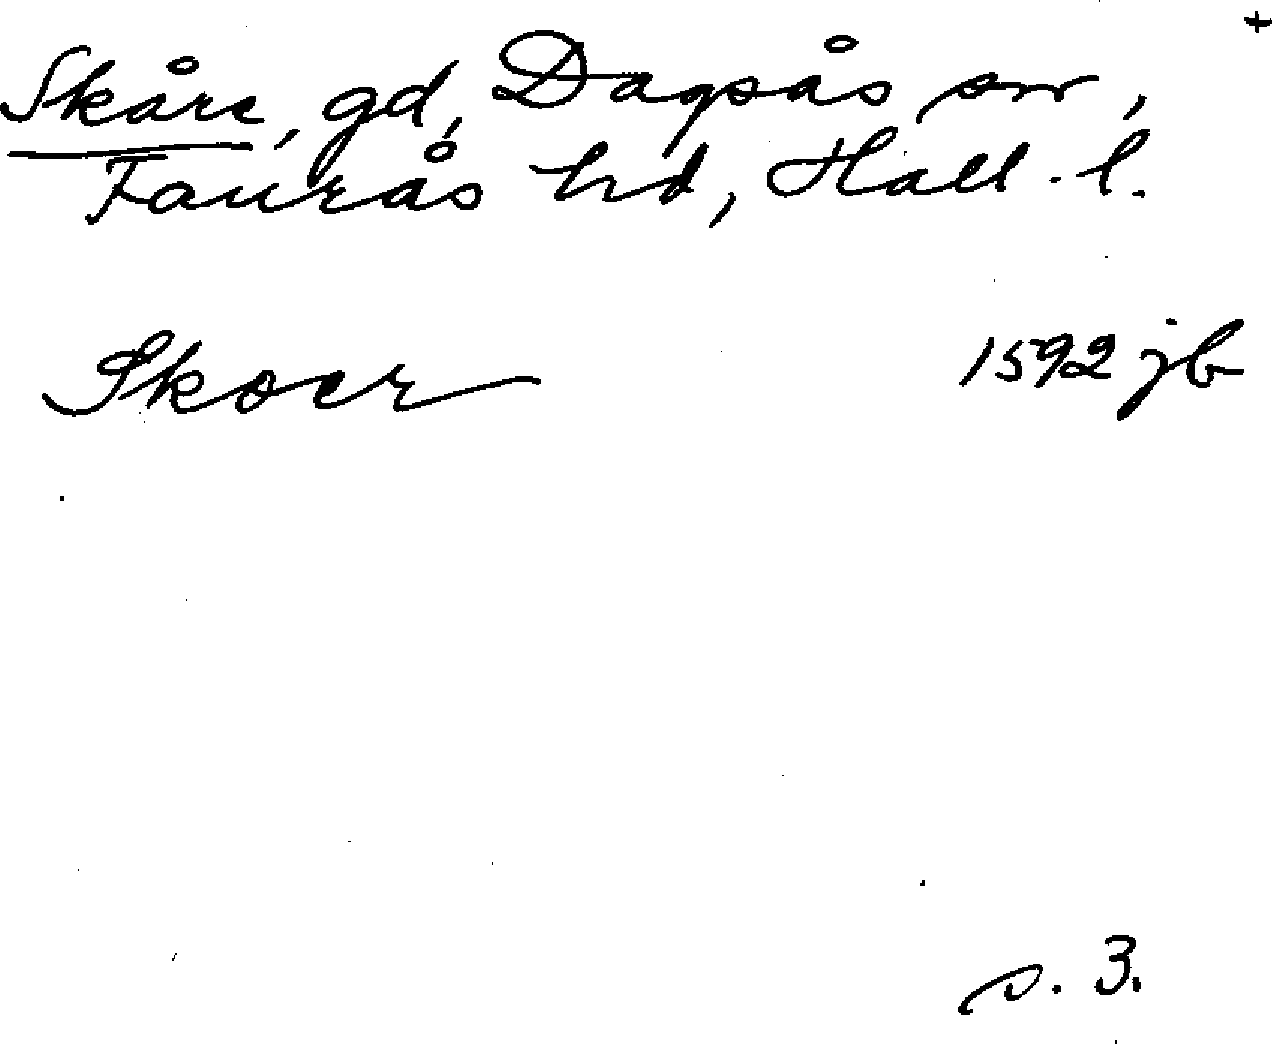 +
Skåre, gd, Dagsås sn,
Faurås hd, Hall. l.
Skoer 1592 jb
s. 3.